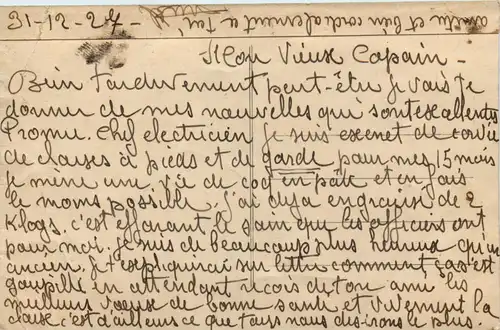 31-12-27-
amitié et bien cordialement à toi
Mon Vieux Copain-
Bien tardivement peut-être je vais te
donner de mes nouvelles qui sont excellentes
Promu. Chef electricien je suis exenet de corvée
de classes à pieds et de garde pour mes 15 mois
je mène une vie de coq en pâte et en fais
le moins possible. J'ai deja engraissé de 2
Klogs, c'est effarant le soin que les officiers ont
pour moi. je suis de beaucoup plus heureux qu'un
ancien. Je t'expliquerai sur lettre comment ça s'est
goupillé en attendant recois de ton ami les
meilleurs voeux de bonne santé et vivement la
classe c'est d'ailleurs ce que tous nous desirons le plus.